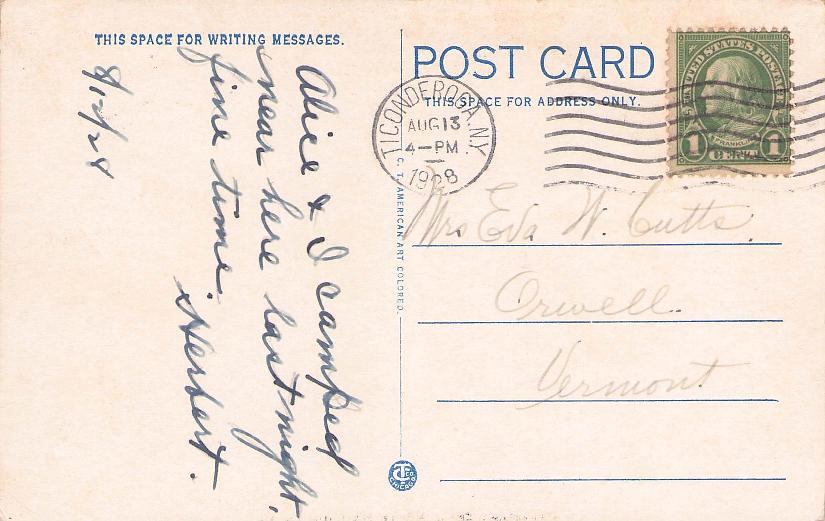 THIS SPACE FOR WRITING MESSAGES.
8/12/28
Alice & I camped
near here last night.
fine time.
Herbert.
POST CARD
THIS SPACE FOR ADDRESS ONLY.
TICONDEROGA, N.Y.
AUG 13
4-PM
1928
UNITED STATES POSTAGE
FRANKLIN
1 CENT 1
Mrs Eva W. Cutts.
Orwell.
Vermont
C. T. AMERICAN ART COLORED.
CT CO. CHICAGO